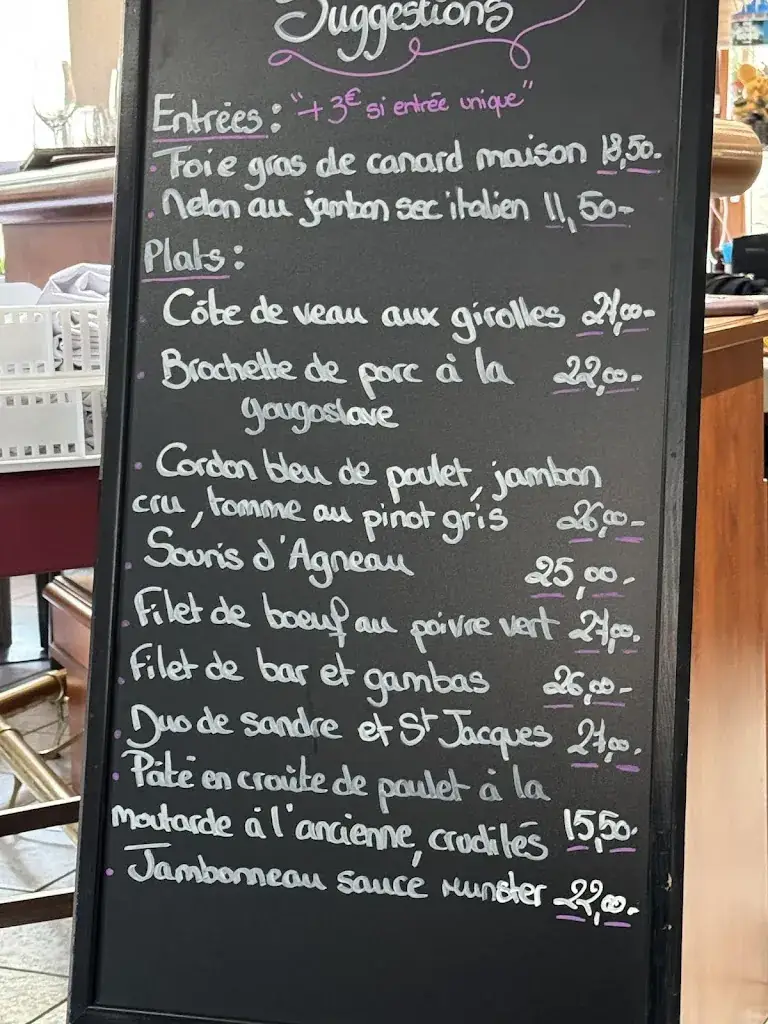 Suggestions
Entrées : "+3€ si entrée unique"
. Foie gras de canard maison 18,50.-
. Melon au jambon sec italien 11,50-
Plats :
. Côte de veau aux girolles 27,00-
. Brochette de porc à la 22,00-
yougoslave
. Cordon bleu de poulet, jambon
cru, tomme au pinot gris 26,00-
. Souris d'Agneau 25,00.-
. Filet de boeuf au poivre vert 27,00.
. Filet de bar et gambas 26,00-
. Duo de sandre et St Jacques 27,00.
. Pâté en croûte de poulet à la
moutarde à l'ancienne, crudités 15,50.
. Jambonneau sauce Munster 22,00.-